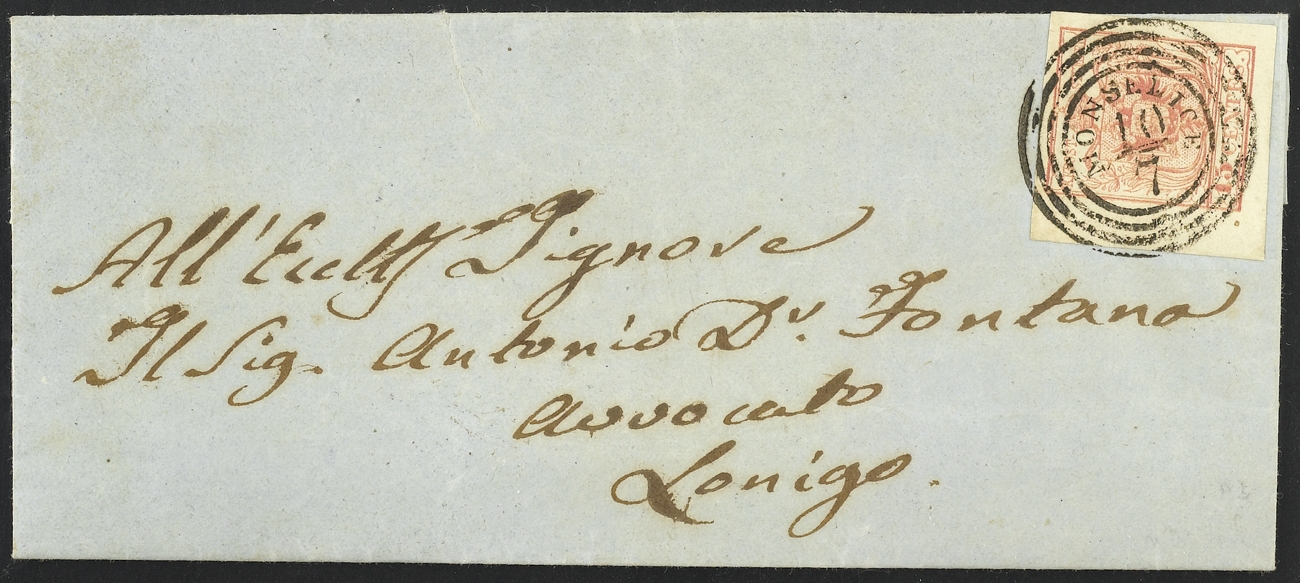 MONSELICE
10
7
All' Eccllō Signore
Il Sig. Antonio Dr. Fontana
Avvocato
Lonigo.